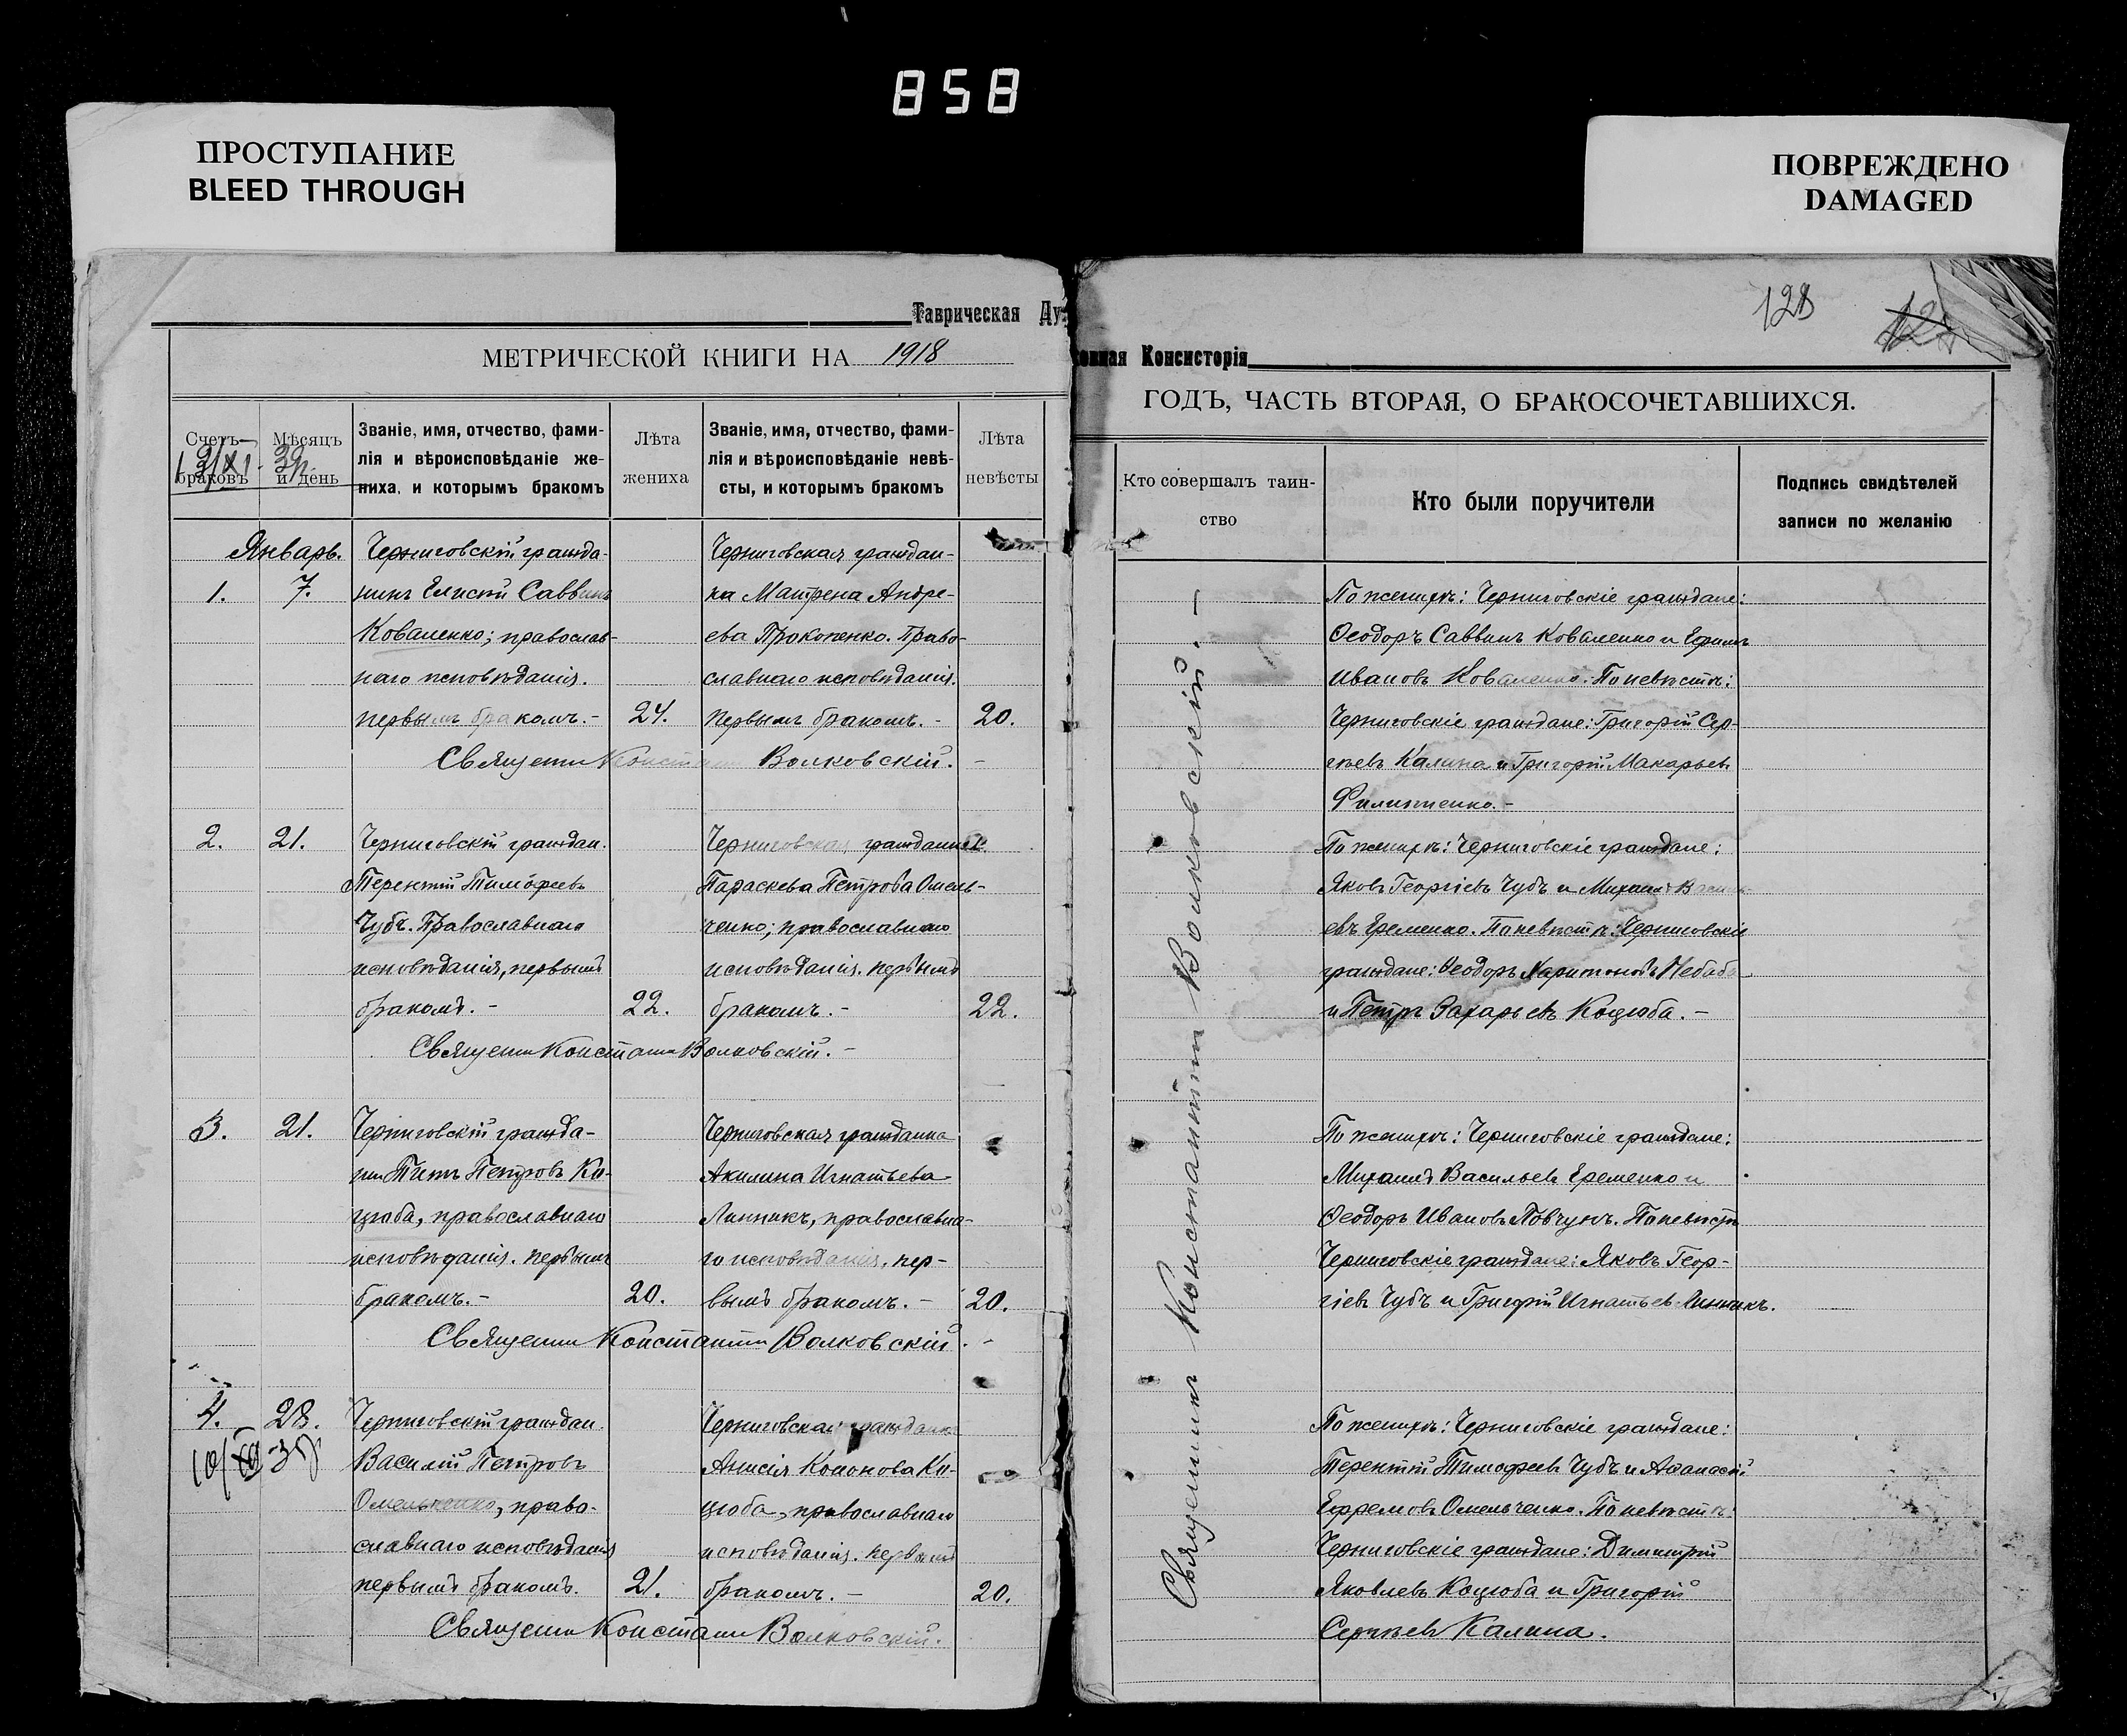 858
ПРОСТУПАНИЕ
BLEED THROUGH
ПОВРЕЖДЕНО
DAMAGED
Таврическая Ду
МЕТРИЧЕСКОЙ КНИГИ НА 1918
Счетъ браковъ
Мѣсяцъ и день
Званіе, имя, отчество, фами-
лія и вѣроисповѣданіе же-
ниха, и которымъ бракомъ
Лѣта
жениха
Званіе, имя, отчество, фами-
лія и вѣроисповѣданіе невѣ-
сты, и которымъ бракомъ
Лѣта
невѣсты
Январь.
1.
7.
Черниговскій гражда-
нинъ Елисей Саввинъ
Коваленко; православ-
наго исповѣданія.
первымъ бракомъ.-
24.
Черниговская граждан-
ка Матрена Андре-
ева Прокопенко. Право-
славнаго исповѣданія.
первымъ бракомъ.-
20.
Священн Констан Волковскій.-
2.
21.
Черниговскій граждан.
Терентій Тимофеевъ
Чубъ. Православнаго
исповѣданія, первымъ
бракомъ.-
22.
Черниговская гражданка
Параскева Петрова Омель-
ченко; православнаго
исповѣданія. первымъ
бракомъ.-
22.
Священн Констант Волковскій.-
3.
21.
Черниговскій гражда-
нин Титъ Петровъ Ко-
цюба, православнаго
исповѣданія. первымъ
бракомъ.-
20.
Черниговская гражданка
Акилина Игнатьева
Линникъ, православна-
го исповѣданія, пер-
вымъ бракомъ.-
20.
Священн Константин Волковскій.-
4.
28.
Черниговскій граждан.
Василій Петровъ
Омельченко, право-
славнаго исповѣданія
первымъ бракомъ.
21.
Черниговская гражданка
Анисія Кононова Ко-
цюба, православнаго
исповѣданія. первымъ
бракомъ.-
20.
Священн Констан Волковскій.
128
овная Консисторія
ГОДЪ, ЧАСТЬ ВТОРАЯ, О БРАКОСОЧЕТАВШИХСЯ.
Кто совершалъ таин-
ство
Кто были поручители
Подпись свидѣтелей
записи по желанію
Священникъ Константин Волковскій.-
По женихѣ: Черниговскіе граждане:
Ѳеодоръ Саввинъ Коваленко и Ефимъ
Ивановъ Коваленко. По невѣстѣ:
Черниговскіе граждане: Григорій Сер-
гѣевъ Калина и Григорій Макарьевъ
Филипенко.-
По женихѣ: Черниговскіе граждане:
Яковъ Георгіевъ Чубъ и Михаилъ Василь-
евъ Еременко. По невѣстѣ: Черниговскіе
граждане: Ѳеодоръ Харитоновъ Небаба
и Петръ Захарьевъ Коцюба.-
По женихѣ: Черниговскіе граждане:
Михаилъ Васильевъ Еременко и
Ѳеодоръ Ивановъ Повчунъ. По невѣстѣ
Черниговскіе граждане: Яковъ Геор-
гіевъ Чубъ и Григорій Игнатьевъ Линникъ.
По женихѣ: Черниговскіе граждане:
Терентій Тимофеевъ Чубъ и Аѳанасій
Ефремовъ Омельченко. По невѣстѣ:
Черниговскіе граждане: Димитрій
Яковлевъ Коцюба и Григорій
Сергѣевъ Калина.